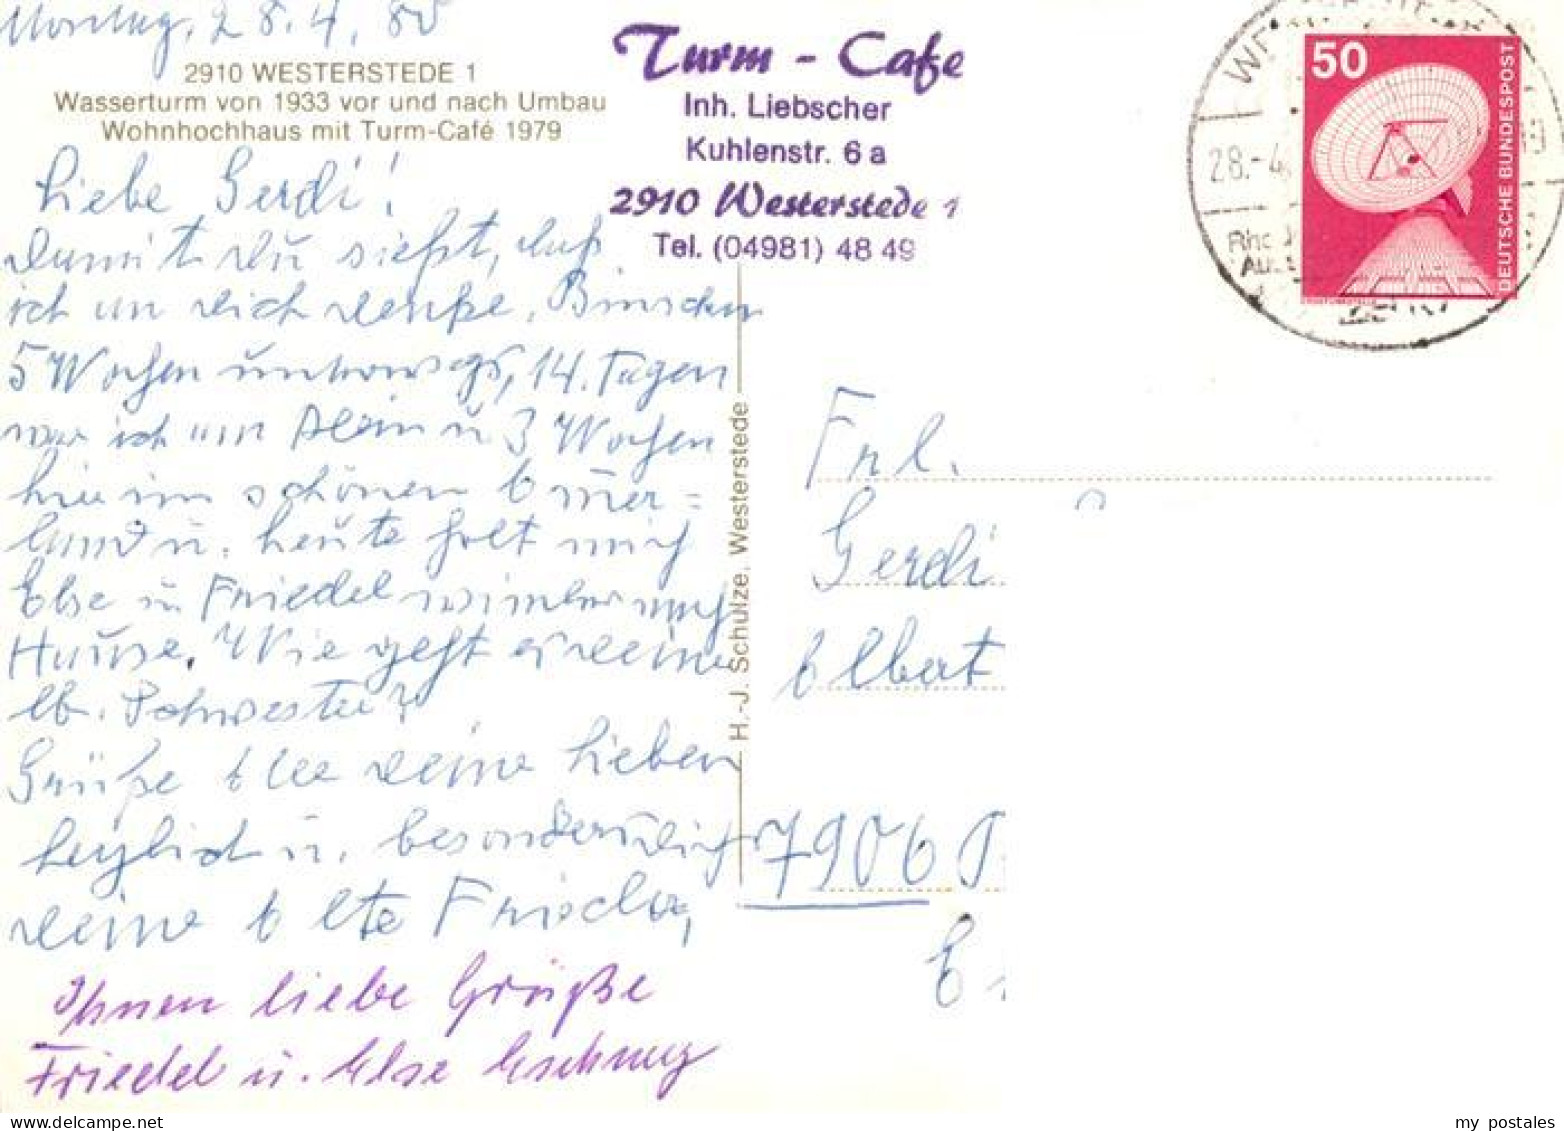 Montag, 28.4.80
2910 WESTERSTEDE 1
Wasserturm von 1933 vor und nach Umbau
Wohnhochhaus mit Turm-Café 1979
Turm - Cafe
Inh. Liebscher
Kuhlenstr. 6 a
2910 Westerstede 1
Tel. (04981) 48 49
28.-4
50
DEUTSCHE BUNDESPOST
Liebe Gerdi!
Damit du siehst, daß
ich an dich denke. Bin schon
5 Wochen unterwegs, 14. Tagen
war ich am Rhein u 3 Wochen
hier im schönen Ammer=
land u. heute holt mich
Else u Friedel wieder nach
Hause. Wie geht es deine
lb. Schwester?
Grüße alle deine Lieben
herzlich u. besonders dich
deine alte
Ihnen liebe Grüße
Friedel u. Else
H.-J. Schulze, Westerstede
Frl.
Gerdi
Albert
7906